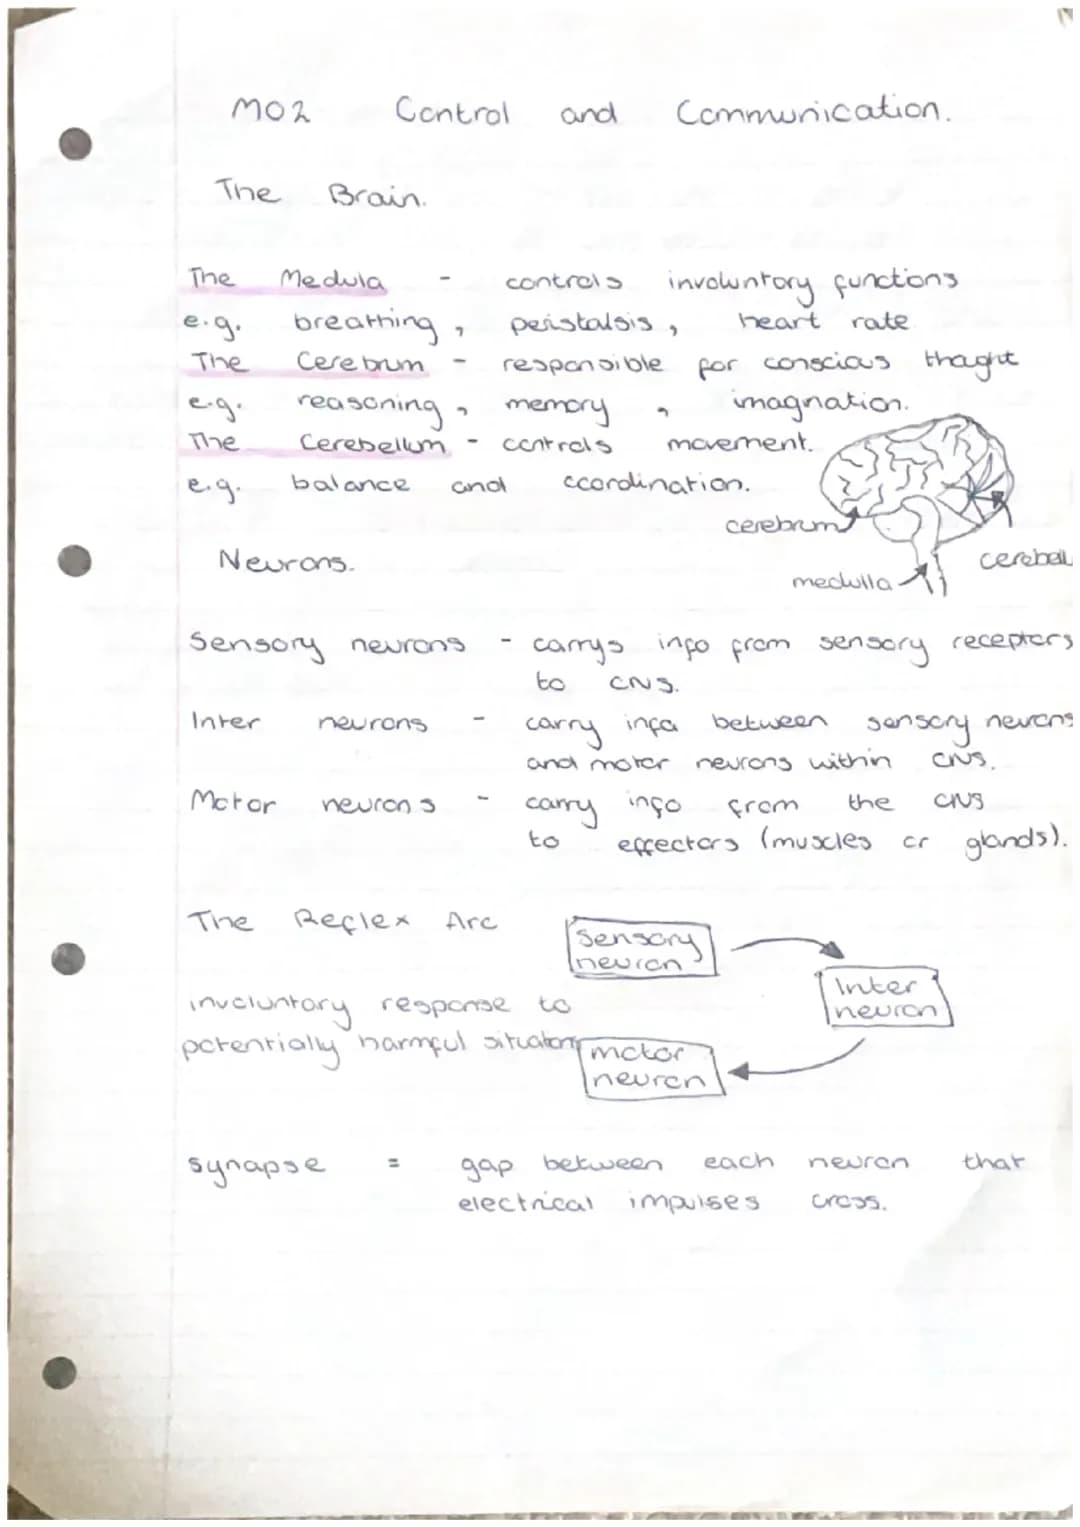 MO2 Control and Communication.
The Brain.
The Medula - controls involuntory functions
e.g. breathing, peristalsis, heart rate
The Cerebrum - responsible for conscious thought
e.g. reasoning, memory, imagnation.
The Cerebellum - controls movement.
e.g. balance and coordination.
cerebrum
cerebell
medulla
Neurons.
Sensory neurons - carrys info from sensory receptors
to CNS.
Inter neurons - carry info between sensory neurons
and motor neurons within CNS.
Motor neurons - carry info from the CNS
to effectors (muscles or glands).
The Reflex Arc
Sensory
neuron
Inter
neuron
involuntary response to
potentially harmful situations
motor
neuron
synapse = gap between each neuron that
electrical impulses cross.